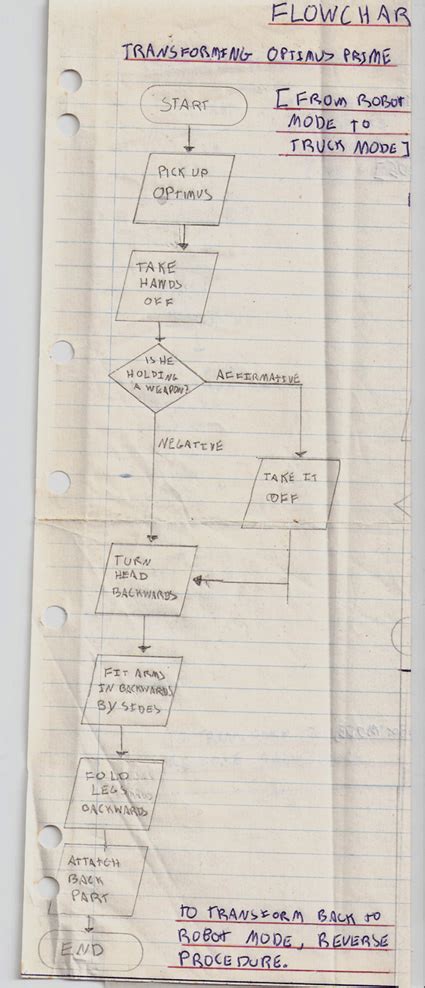 FLOWCHAR
TRANSFORMING OPTIMUS PRIME
[FROM ROBOT
MODE TO
TRUCK MODE]
START
PICK UP
OPTIMUS
TAKE
HANDS
OFF
IS HE
HOLDING
A WEAPON?
AFFIRMATIVE
NEGATIVE
TAKE IT
OFF
TURN
HEAD
BACKWARDS
FIT ARMS
IN BACKWARDS
BY SIDES
FOLD
LEGS
BACKWARDS
ATTATCH
BACK
PART
END
TO TRANSFORM BACK TO
ROBOT MODE, REVERSE
PROCEDURE.